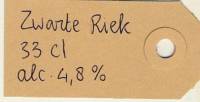 Zwarte Riek
33 cl
alc. 4,8 %